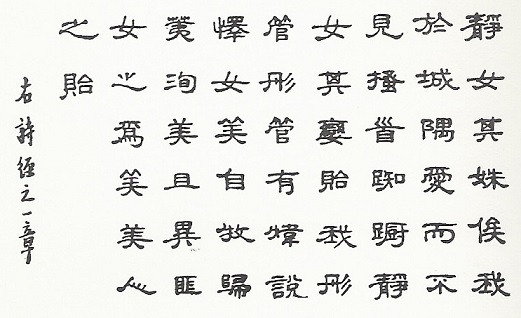 靜女其姝俟我
於城隅愛而不
見搔首踟躕靜
女其孌貽我彤
管彤管有煒說
懌女美自牧歸
荑洵美且異匪
女之爲美美人
之貽
右詩經之一章